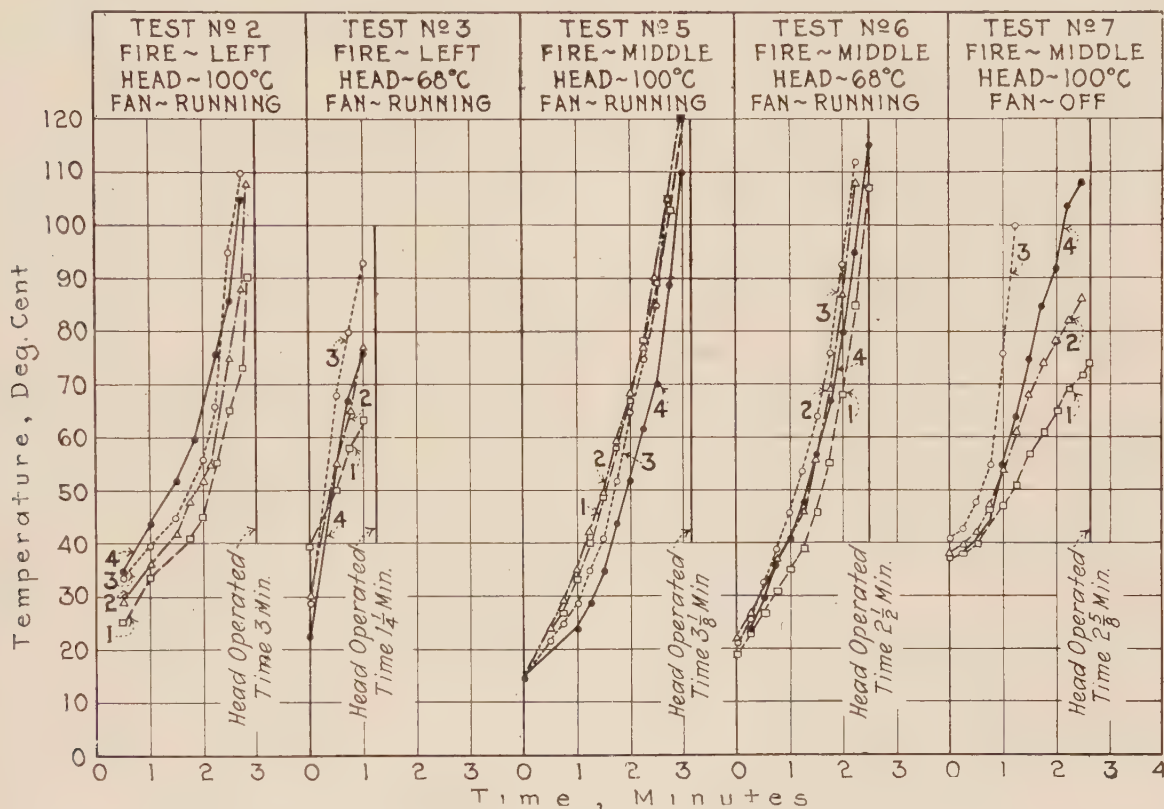 TEST Nº 2
FIRE~LEFT
HEAD~100°C
FAN~RUNNING
TEST Nº 3
FIRE~LEFT
HEAD~68°C
FAN~RUNNING
TEST Nº 5
FIRE~MIDDLE
HEAD~100°C
FAN~RUNNING
TEST Nº 6
FIRE~MIDDLE
HEAD~68°C
FAN~RUNNING
TEST Nº 7
FIRE~MIDDLE
HEAD~100°C
FAN~OFF
Temperature, Deg. Cent
120
110
100
90
80
70
60
50
40
30
20
10
0
4
3
2
1
Head Operated
Time 3 Min.
3
2
1
4
Head Operated
Time 1 1/4 Min.
2
1
3
4
Head Operated
Time 3 1/8 Min
3
2
4
1
Head Operated
Time 2 1/2 Min
3
4
2
1
Head Operated
Time 2 5/8 Min.
0 1 2 3 0 1 2 3 0 1 2 3 0 1 2 3 0 1 2 3 4
Time, Minutes